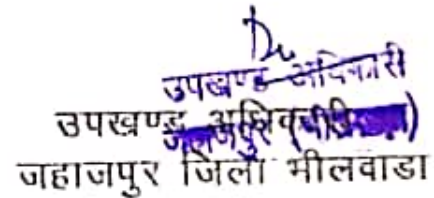 उपखण्ड अधिकारी
उपखण्ड अधिकारी
जहाजपुर जिला भीलवाडा